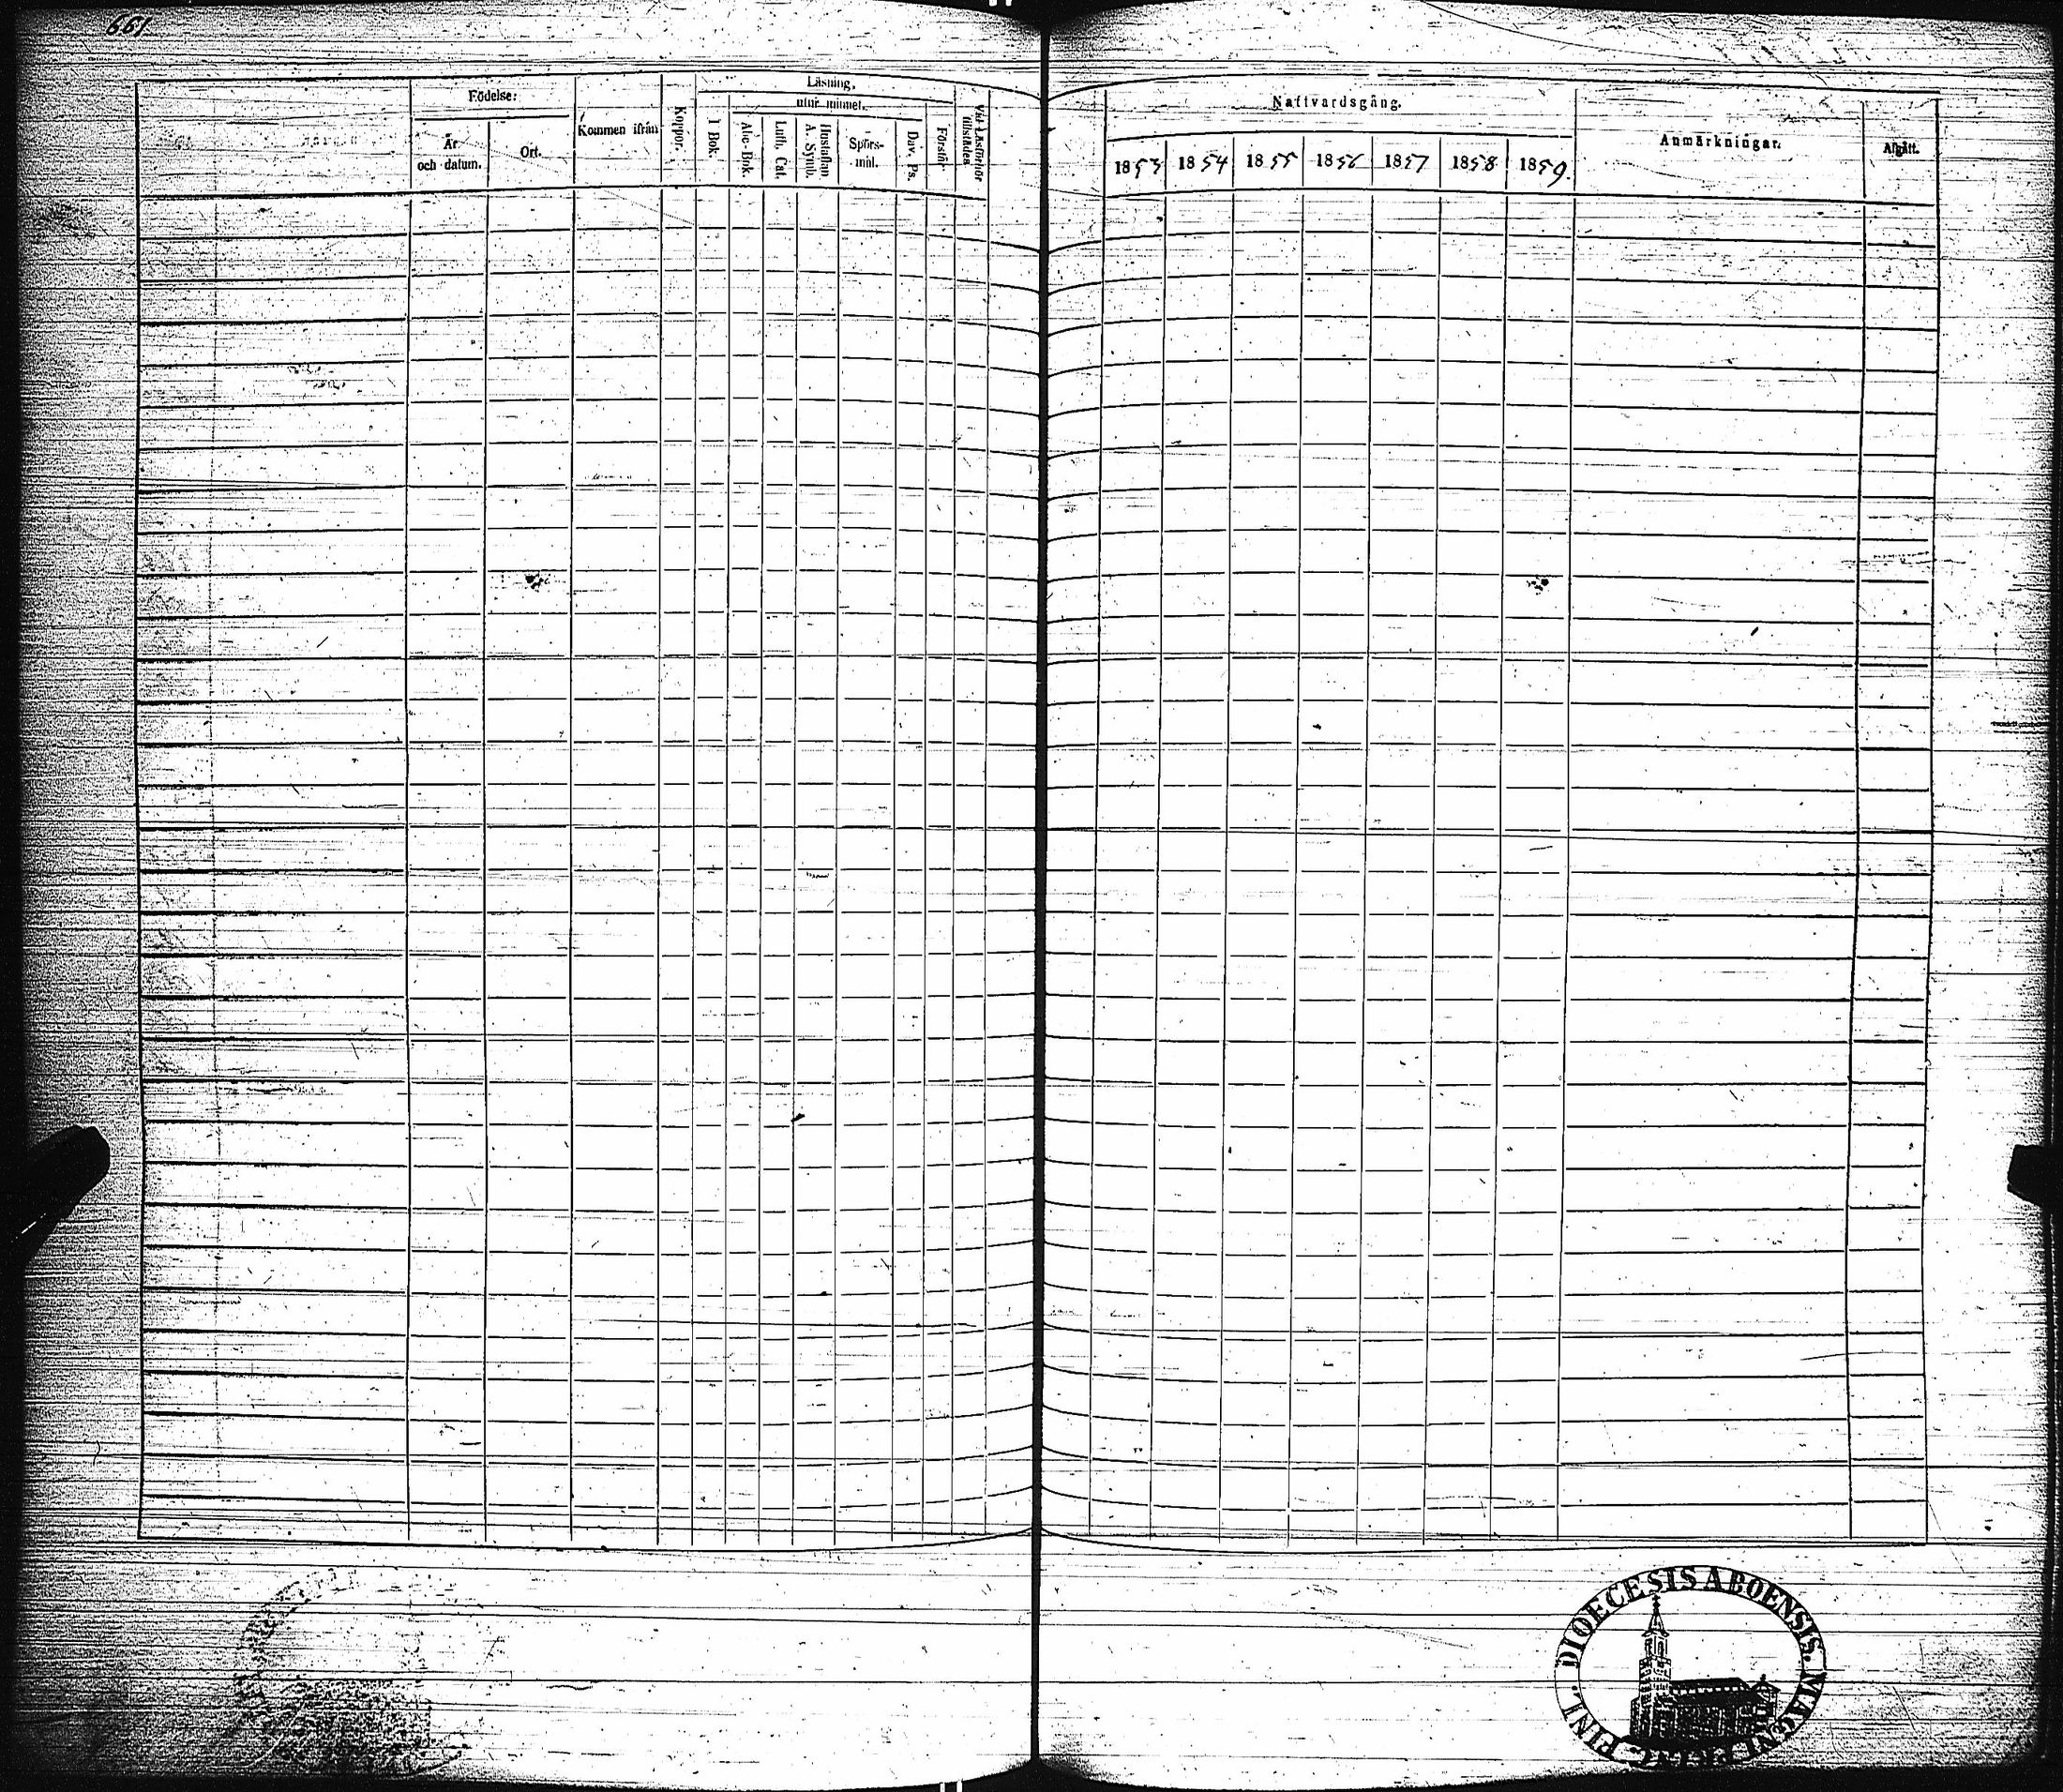 661
Födelse:
År och datum.
Ort.
Kommen ifrån
Koppor.
Läsning,
utur minnet.
I Bok.
Abc-Bok.
Luth. Cat.
Hustaflan A. Symb.
Spörsmål.
Dav. Ps.
Förstår
Vid Läsförhör tillstädes
Nattvardsgång.
1853 1854 1855 1856 1857 1858 1859.
Anmärkningar.
Afgått.
DIOECESIS ABOENSIS. MAGNI FINL.